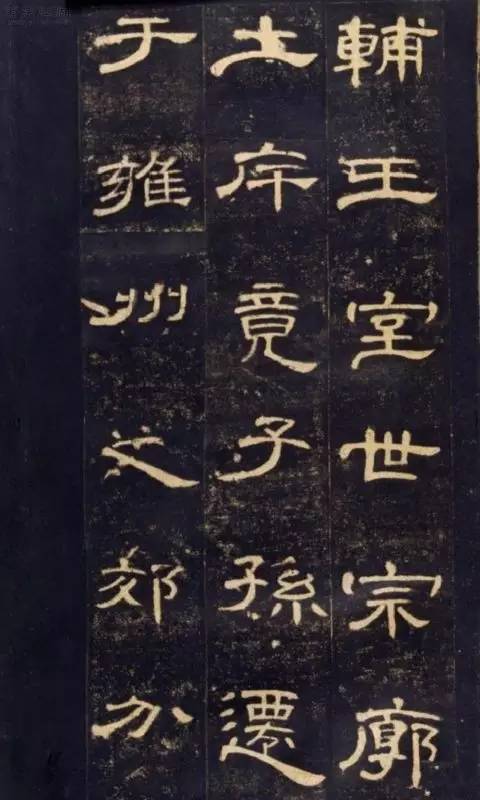 輔王室世宗廓
土庍竟子孫遷
于雍州之郊分